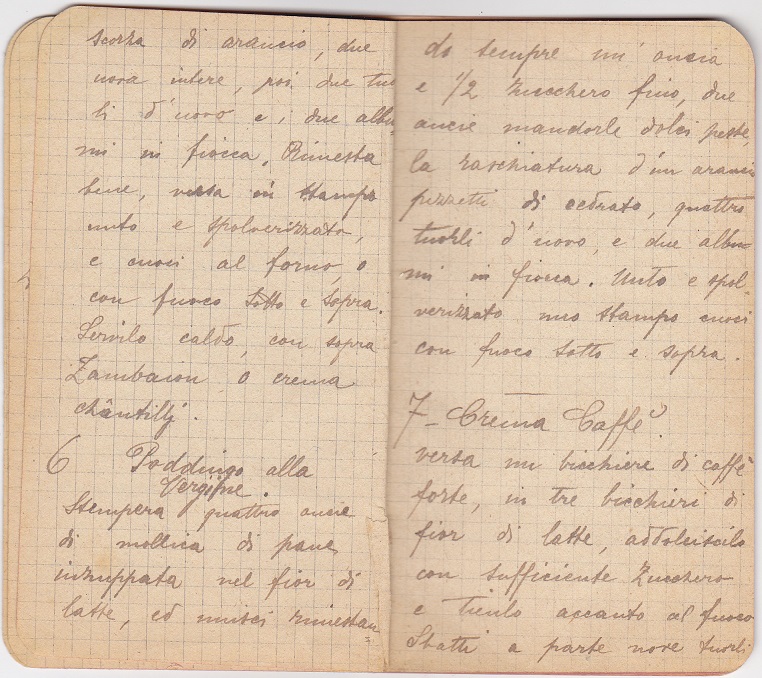 scorza di arancio, due
uova intere, poi due tuor
li d'uovo e i due albu
mi in fiocca. Rimesta
bene, versa in stampo
unto e spolverizzato,
e cuoci al forno, o
con fuoco sotto e sopra.
Servilo caldo, con sopra
Zambaion o crema
chântillj.
6 Poddingo alla
Vergine.
Stempera quattro oncie
di mollica di pane
inzuppata nel fior di
latte, ed unisci rimestan=
do sempre un'oncia
e 1/2 zucchero fino, due
oncie mandorle dolci peste,
la raschiatura d'un arancio
pezzetti di cedrato, quattro
tuorli d'uovo, e due albu-
mi in fiocca. Unto e spol-
verizzato uno stampo cuoci
con fuoco sotto e sopra.
7- Crema Caffè.
versa un bicchiere di caffè
forte, in tre bicchieri di
fior di latte, addolciscilo
con sufficiente zucchero
e tienlo accanto al fuoco
Sbatti a parte nove tuorli